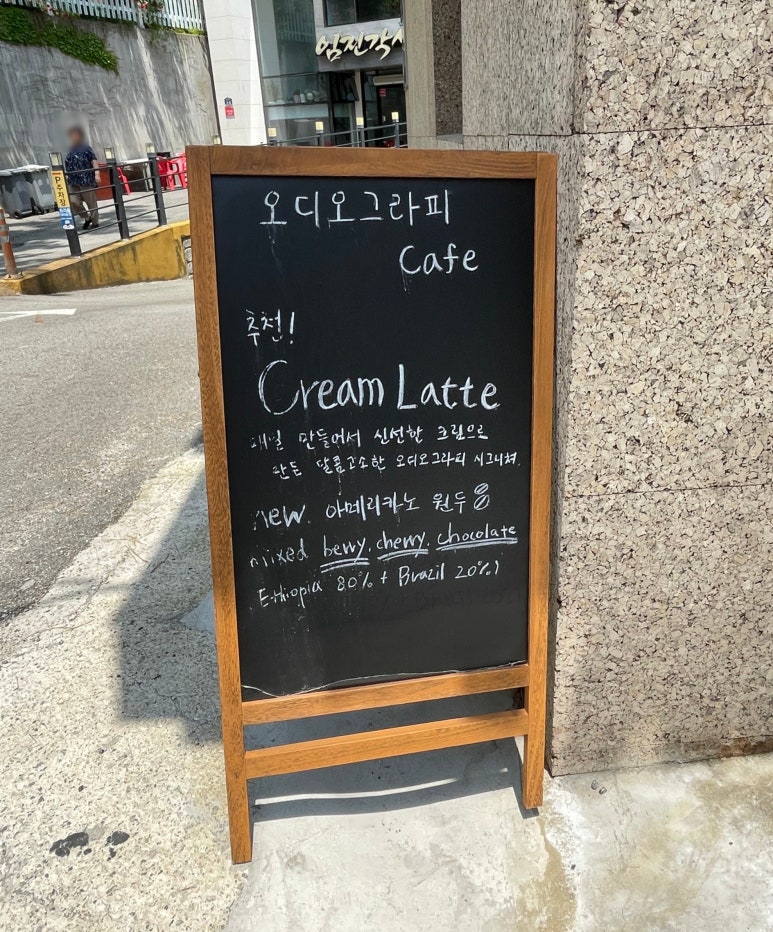 임진각
오디오그라피
Cafe
추천!
Cream Latte
매일 만들어서 신선한 크림으로
만든 달콤고소한 오디오그라피 시그니쳐.
new. 아메리카노 원두
mixed berry, cherry, chocolate
Ethiopia 80% + Brazil 20%)
P 주차장